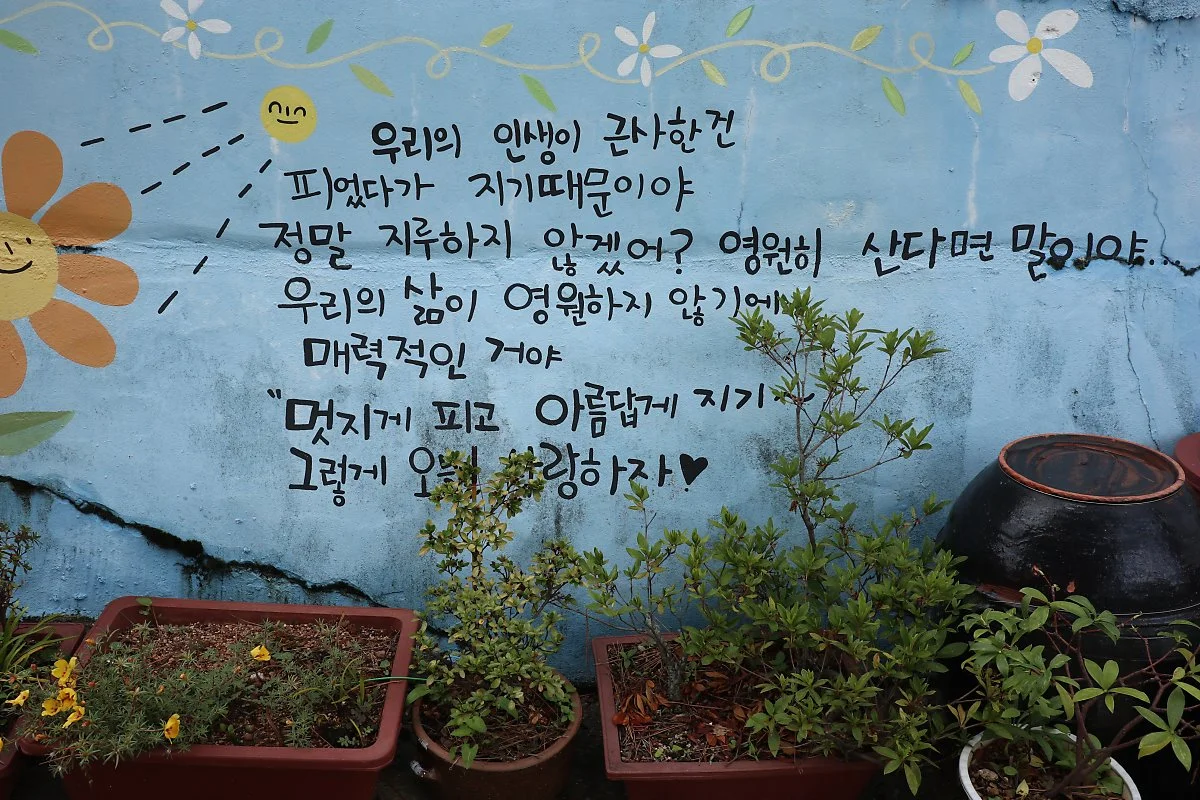 우리의 인생이 근사한건
피었다가 지기때문이야
정말 지루하지 않겠어? 영원히 산다면 말이야...
우리의 삶이 영원하지 않기에
매력적인 거야
"멋지게 피고 아름답게 지기
그렇게 사랑하자♥